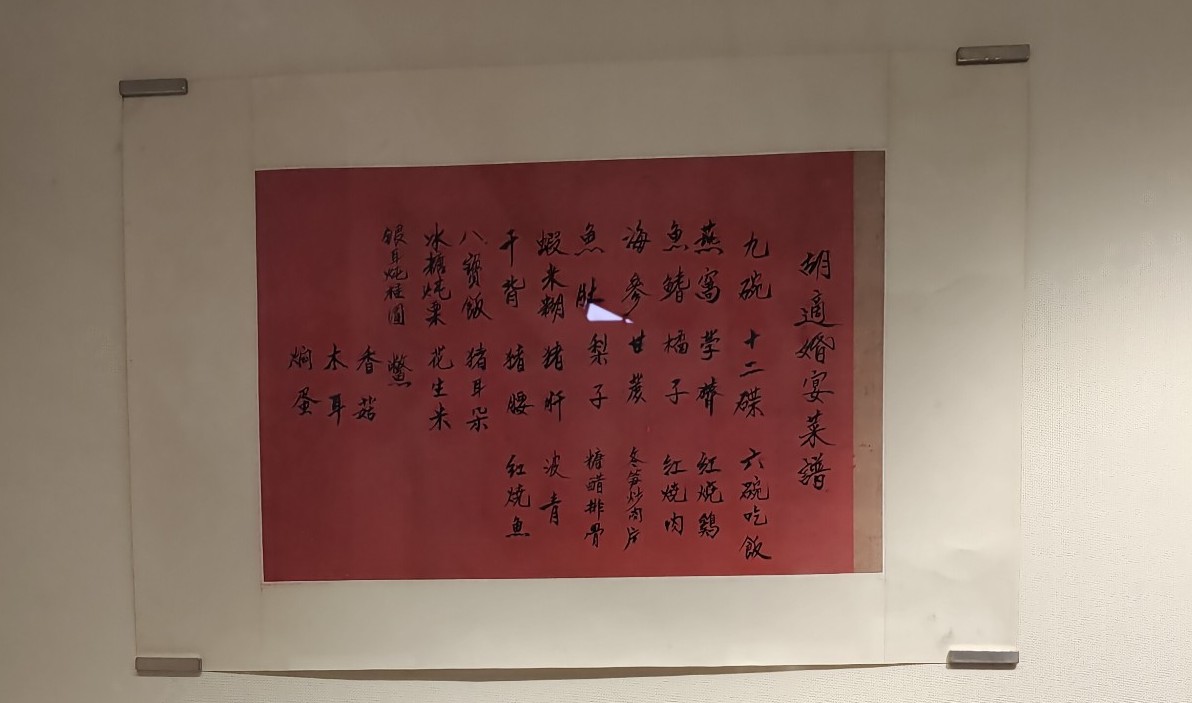 胡適婚宴菜譜
九碗 十二碟 六碗吃飯
燕窩 荸薺 红燒鷄
魚鰭 橘子 红燒肉
海參 甘蔗 冬笋炒肉片
魚肚 梨子 糖醋排骨
蝦米糊 猪肝 波青
干背 猪腰 红燒魚
八寶飯 猪耳朵
冰糖炖栗 花生米
銀耳炖桂圓 鱉
香菇
木耳
焖蛋